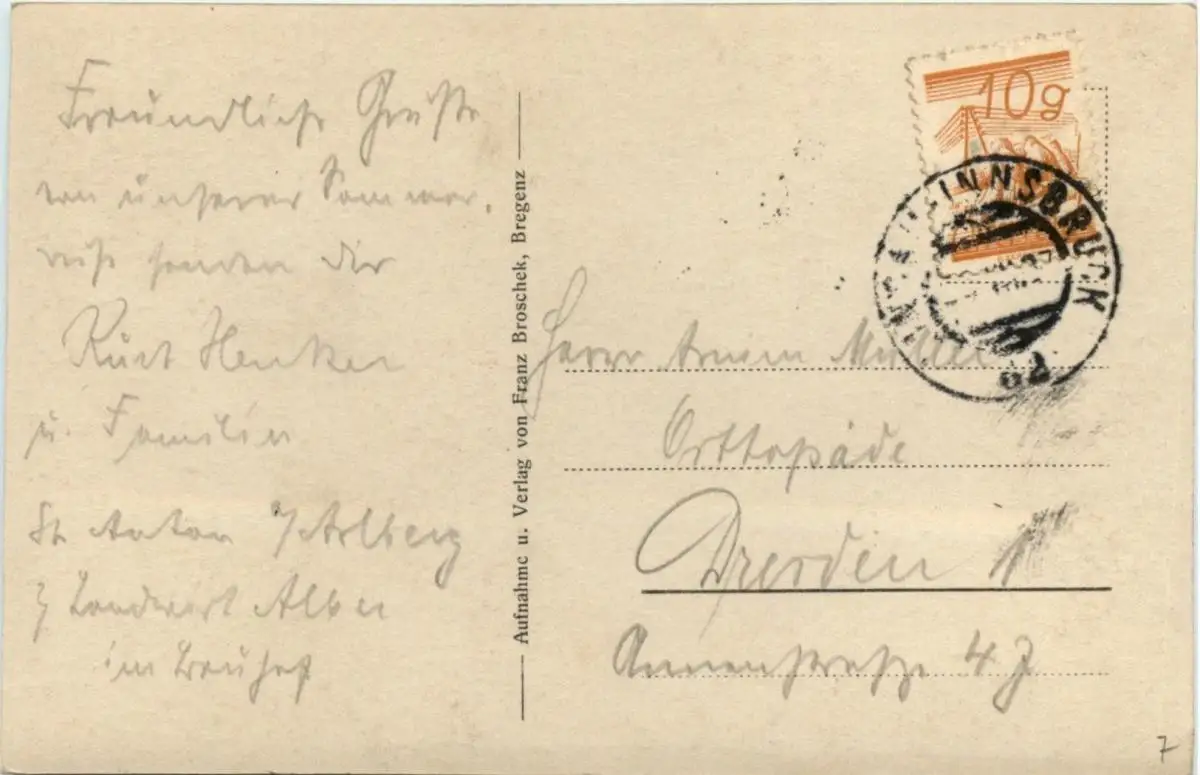 Freundliche Grüße
von unserer Sommer-
reise senden dir
Kurt Henker
u. Familie
St Anton / Arlberg
Landwirt Alber
im
Aufnahme u. Verlag von Franz Broschek, Bregenz
10g
INNSBRUCK
Herrn Armin Müller
Orttopäde
Dresden 1
Annenstraße 4
7